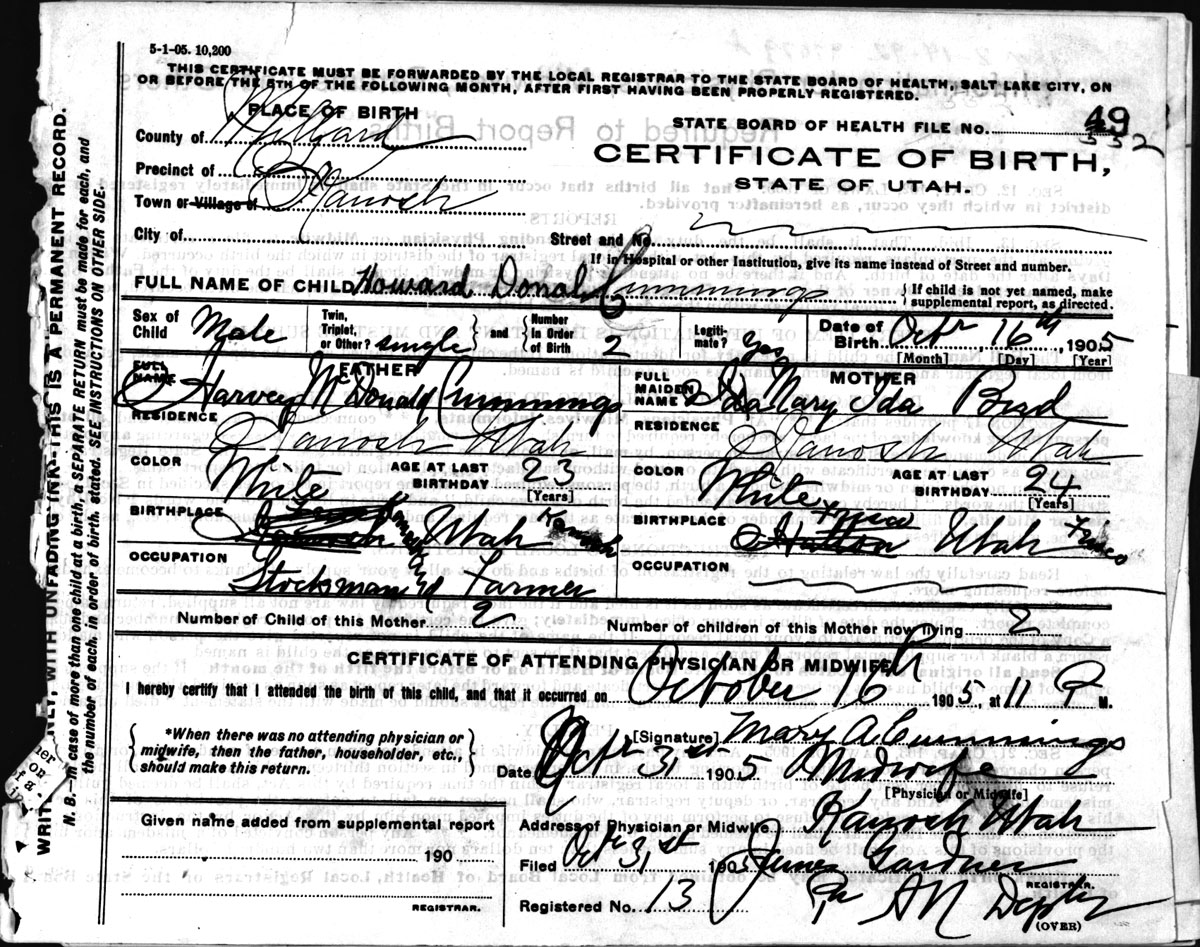 5-1-05. 10,200
THIS CERTIFICATE MUST BE FORWARDED BY THE LOCAL REGISTRAR TO THE STATE BOARD OF HEALTH, SALT LAKE CITY, ON
OR BEFORE THE 5TH OF THE FOLLOWING MONTH, AFTER FIRST HAVING BEEN PROPERLY REGISTERED.
PLACE OF BIRTH
STATE BOARD OF HEALTH FILE NO. 49
332
County of Millard
CERTIFICATE OF BIRTH,
STATE OF UTAH.
Precinct of
Town or Village of Kanosh
City of
Street and No.
If in Hospital or other Institution, give its name instead of Street and number.
FULL NAME OF CHILD Howard Donald Cummings
If child is not yet named, make supplemental report, as directed.
Sex of Child Male Twin, Triplet, or Other? single and Number In Order of Birth 2 Legitimate? yes Date of Birth Octr 16th, 1905
[Month] [Day] [Year]
FATHER
FULL NAME Harvey McDonald Cummings
MOTHER
FULL MAIDEN NAME Mary Ida Bird
RESIDENCE Kanosh Utah
RESIDENCE Kanosh Utah
COLOR White AGE AT LAST BIRTHDAY 23 [Years]
COLOR White AGE AT LAST BIRTHDAY 24 [Years]
BIRTHPLACE Utah Kanosh
BIRTHPLACE Hatton Utah Frisco
OCCUPATION Stockman & Farmer
OCCUPATION
Number of Child of this Mother 2
Number of children of this Mother now living 2
CERTIFICATE OF ATTENDING PHYSICIAN OR MIDWIFE
I hereby certify that I attended the birth of this child, and that it occurred on October 16th 1905, at 11 P M.
*When there was no attending physician or midwife, then the father, householder, etc., should make this return.
[Signature] Mary A. Cummings
Date Octr 31st 1905 Midwife
[Physician or Midwife]
Given name added from supplemental report
190
REGISTRAR.
Address of Physician or Midwife Kanosh Utah
Filed Octr 31st 1905 James Gardner
REGISTRAR.
Registered No. 13
Deputy
(OVER)
WRITE ONLY, WITH UNFADING INK--THIS IS A PERMANENT RECORD.
N. B.—In case of more than one child at a birth, a SEPARATE RETURN must be made for each, and
the number of each, in order of birth, stated. SEE INSTRUCTIONS ON OTHER SIDE.